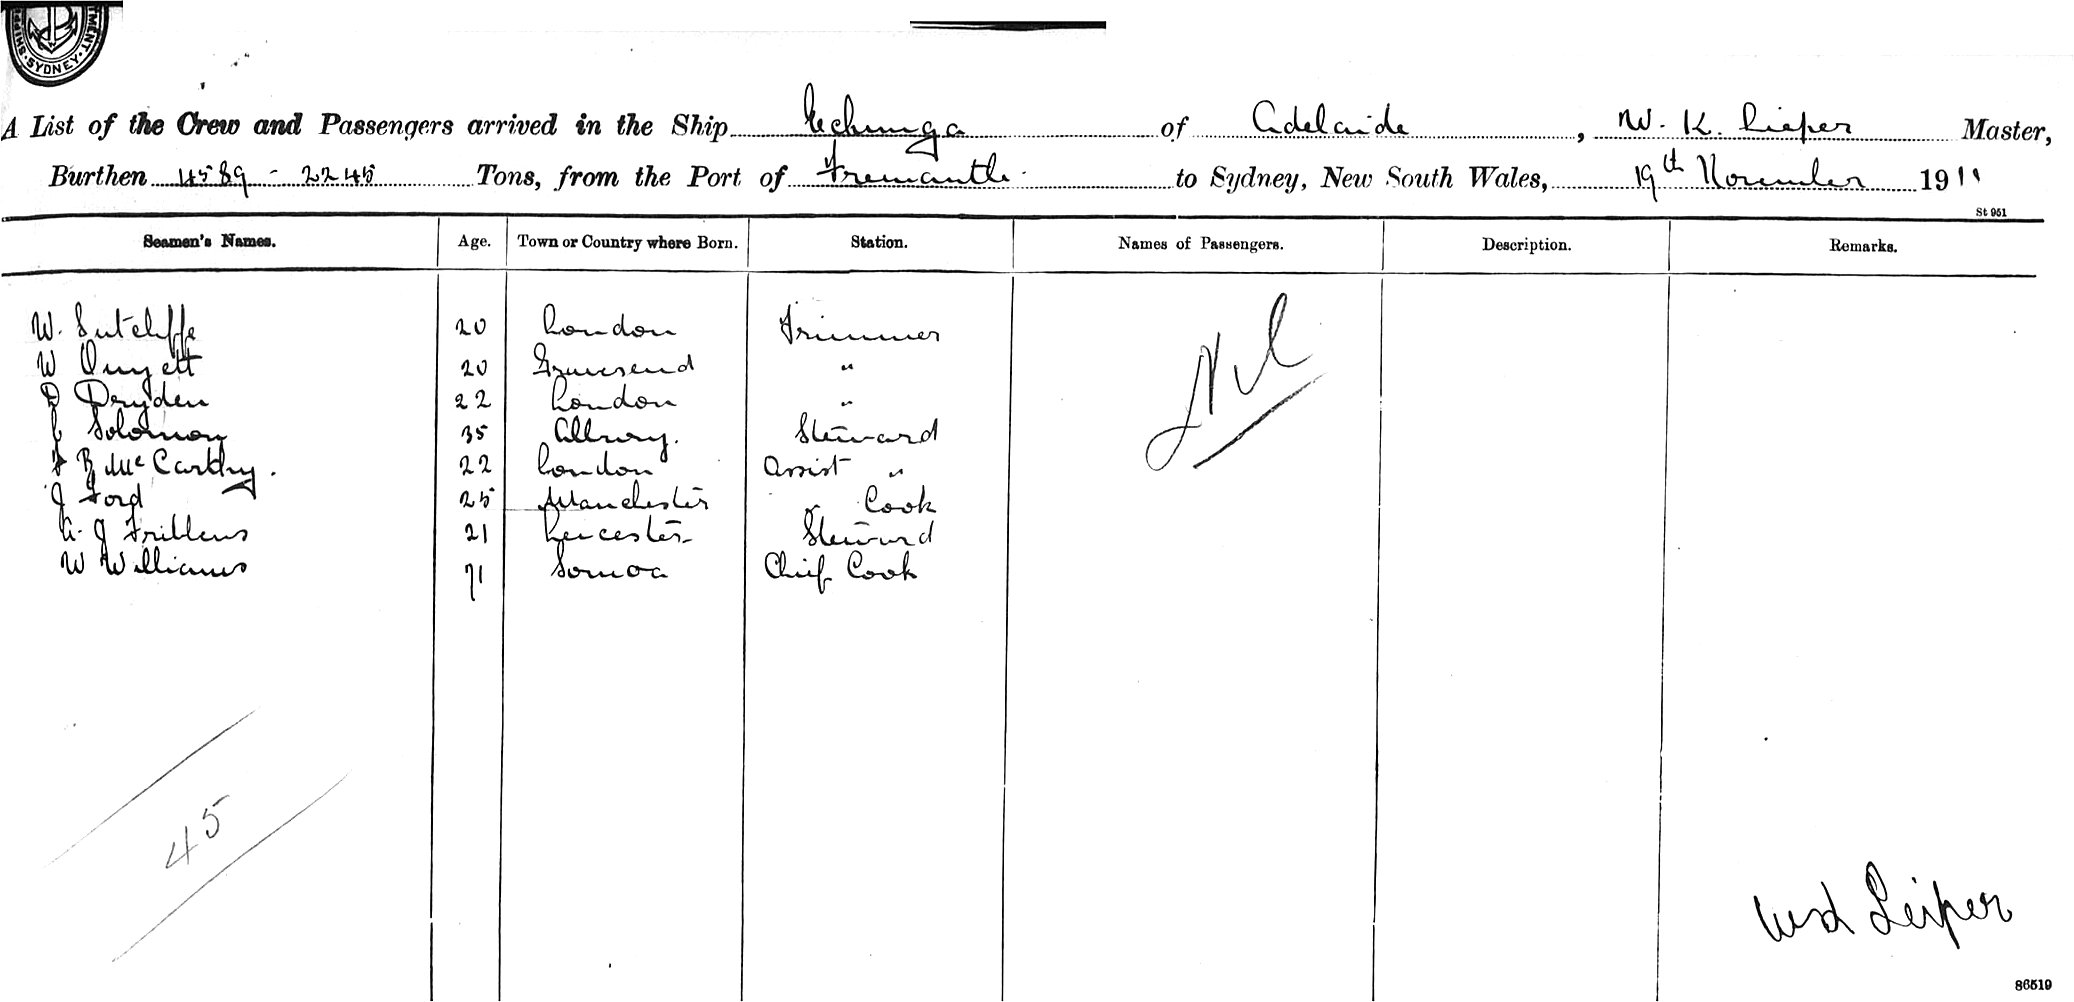 SHIPPI MENT. SYDNEY.
A List of the Crew and Passengers arrived in the Ship Echunga of Adelaide, W. K. Lieper Master,
Burthen 4589 - 2245 Tons, from the Port of Fremantle. to Sydney, New South Wales, 19th November 1911
St 951
Seamen's Names. Age. Town or Country where Born. Station. Names of Passengers. Description. Remarks.
W. Sutcliffe 20 London Trimmer Nil
W 20 Gravesend "
D Dryden 22 London "
Solomon 35 Albury. Steward
B McCarthy. 22 London Assist "
J Ford 25 Manchester " Cook
A. J 21 Leicester Steward
W Williams 71 Somoa Chief Cook
45
Leiper
86519